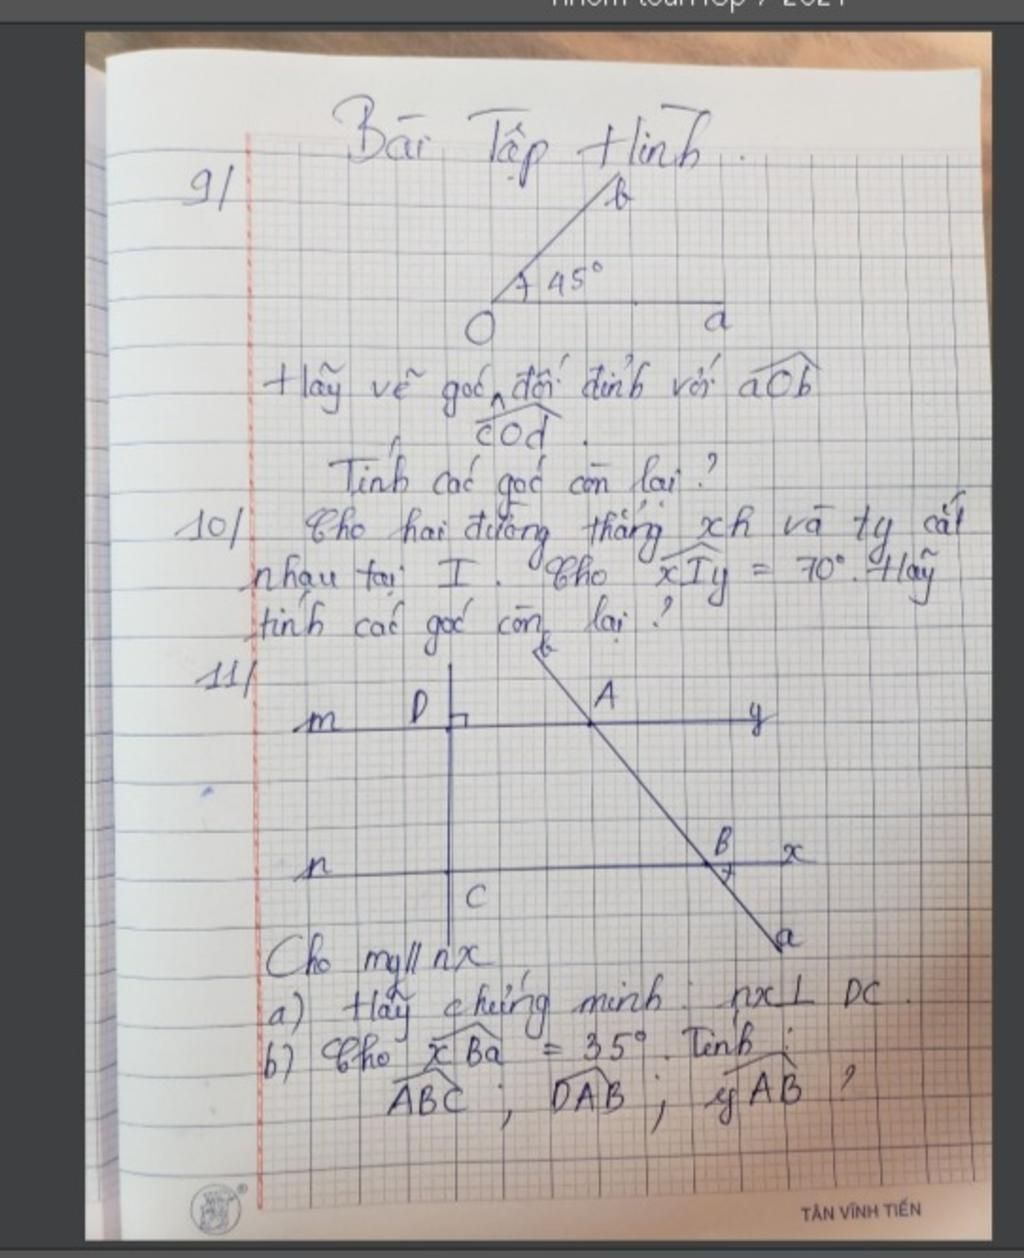 Bài Tập Hình.
9/
b
45°
O
a
Hãy vẽ góc đối đỉnh với aOb
cOd.
Tính các góc còn lại?
10/ Cho hai đường thẳng xh và ty cắt
nhau tại I. Cho xIy = 70°. Hãy
tính các góc còn lại?
11/
b
m D A y
n C B x
a
Cho my // nx
a) Hãy chứng minh: nx ⊥ DC.
b) Cho xBa = 35°. Tính:
ABC; DAB; yAB?
TÂN VĨNH TIẾN